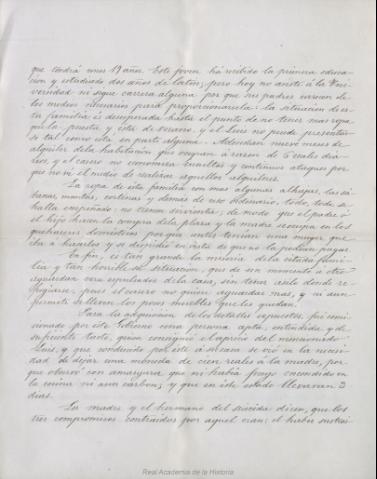 que tendrá unos 19 años. Este joven ha recibido la primera educa-
cion y estudiado dos años de latin; pero hoy no asiste á la Uni-
versidad ni sigue carrera alguna por que sus padres carecen de
los medios necesarios para proporcionarsela: la situacion de es-
ta familia es desesperada hasta el punto de no tener mas ropa
que la puesta, y esta de verano, y el Luis no puede presentar-
se tal como está en parte alguna. Adeudan nueve meses de
alquiler de la habitacion que ocupan á razon de 6 reales dia-
rios, y el casero no economiza insultos y continuos ataques por
que no vé el medio de realizar aquellos alquileres.
La ropa de esta familia con mas algunas alhajas, las sá-
banas, mantas, cortinas y demas de uso ordinario, todo, todo se
halla empeñado: no tienen sirvientes; de modo que el padre ó
el hijo hacen la compra de la plaza y la madre se ocupa en los
quehaceres domésticos porque antes tenian una muger que
iba á hacerlos y se despidió en vista de que no la podian pagar.
En fin, es tan grande la miseria de la citada fami-
lia y tan horrible su situacion, que de un momento á otro
seran espulsados de la casa, sin tener asilo donde re-
fugiarse, pues el casero no quiere esperarles mas, y ni aun
permite se lleven los pocos muebles que les quedan.
Para la adquisicion de los detalles espuestos, fué comi-
sionado por este Gobierno una persona apta, entendida y de
suficiente tacto, quien consiguió el aprecio del mencionado
Luis, y que conducido por este á su casa se vió en la necesi-
dad de dejar una moneda de cien reales á la madre, por-
que observó con amargura que ni habia fuego encendido en
la cocina ni aun carbon; y que en este estado llevavan 3
dias.
La madre y el hermano del suicida dicen, que los
tres compromisos contraidos por aquel eran: el haber
Real Academia de la Historia